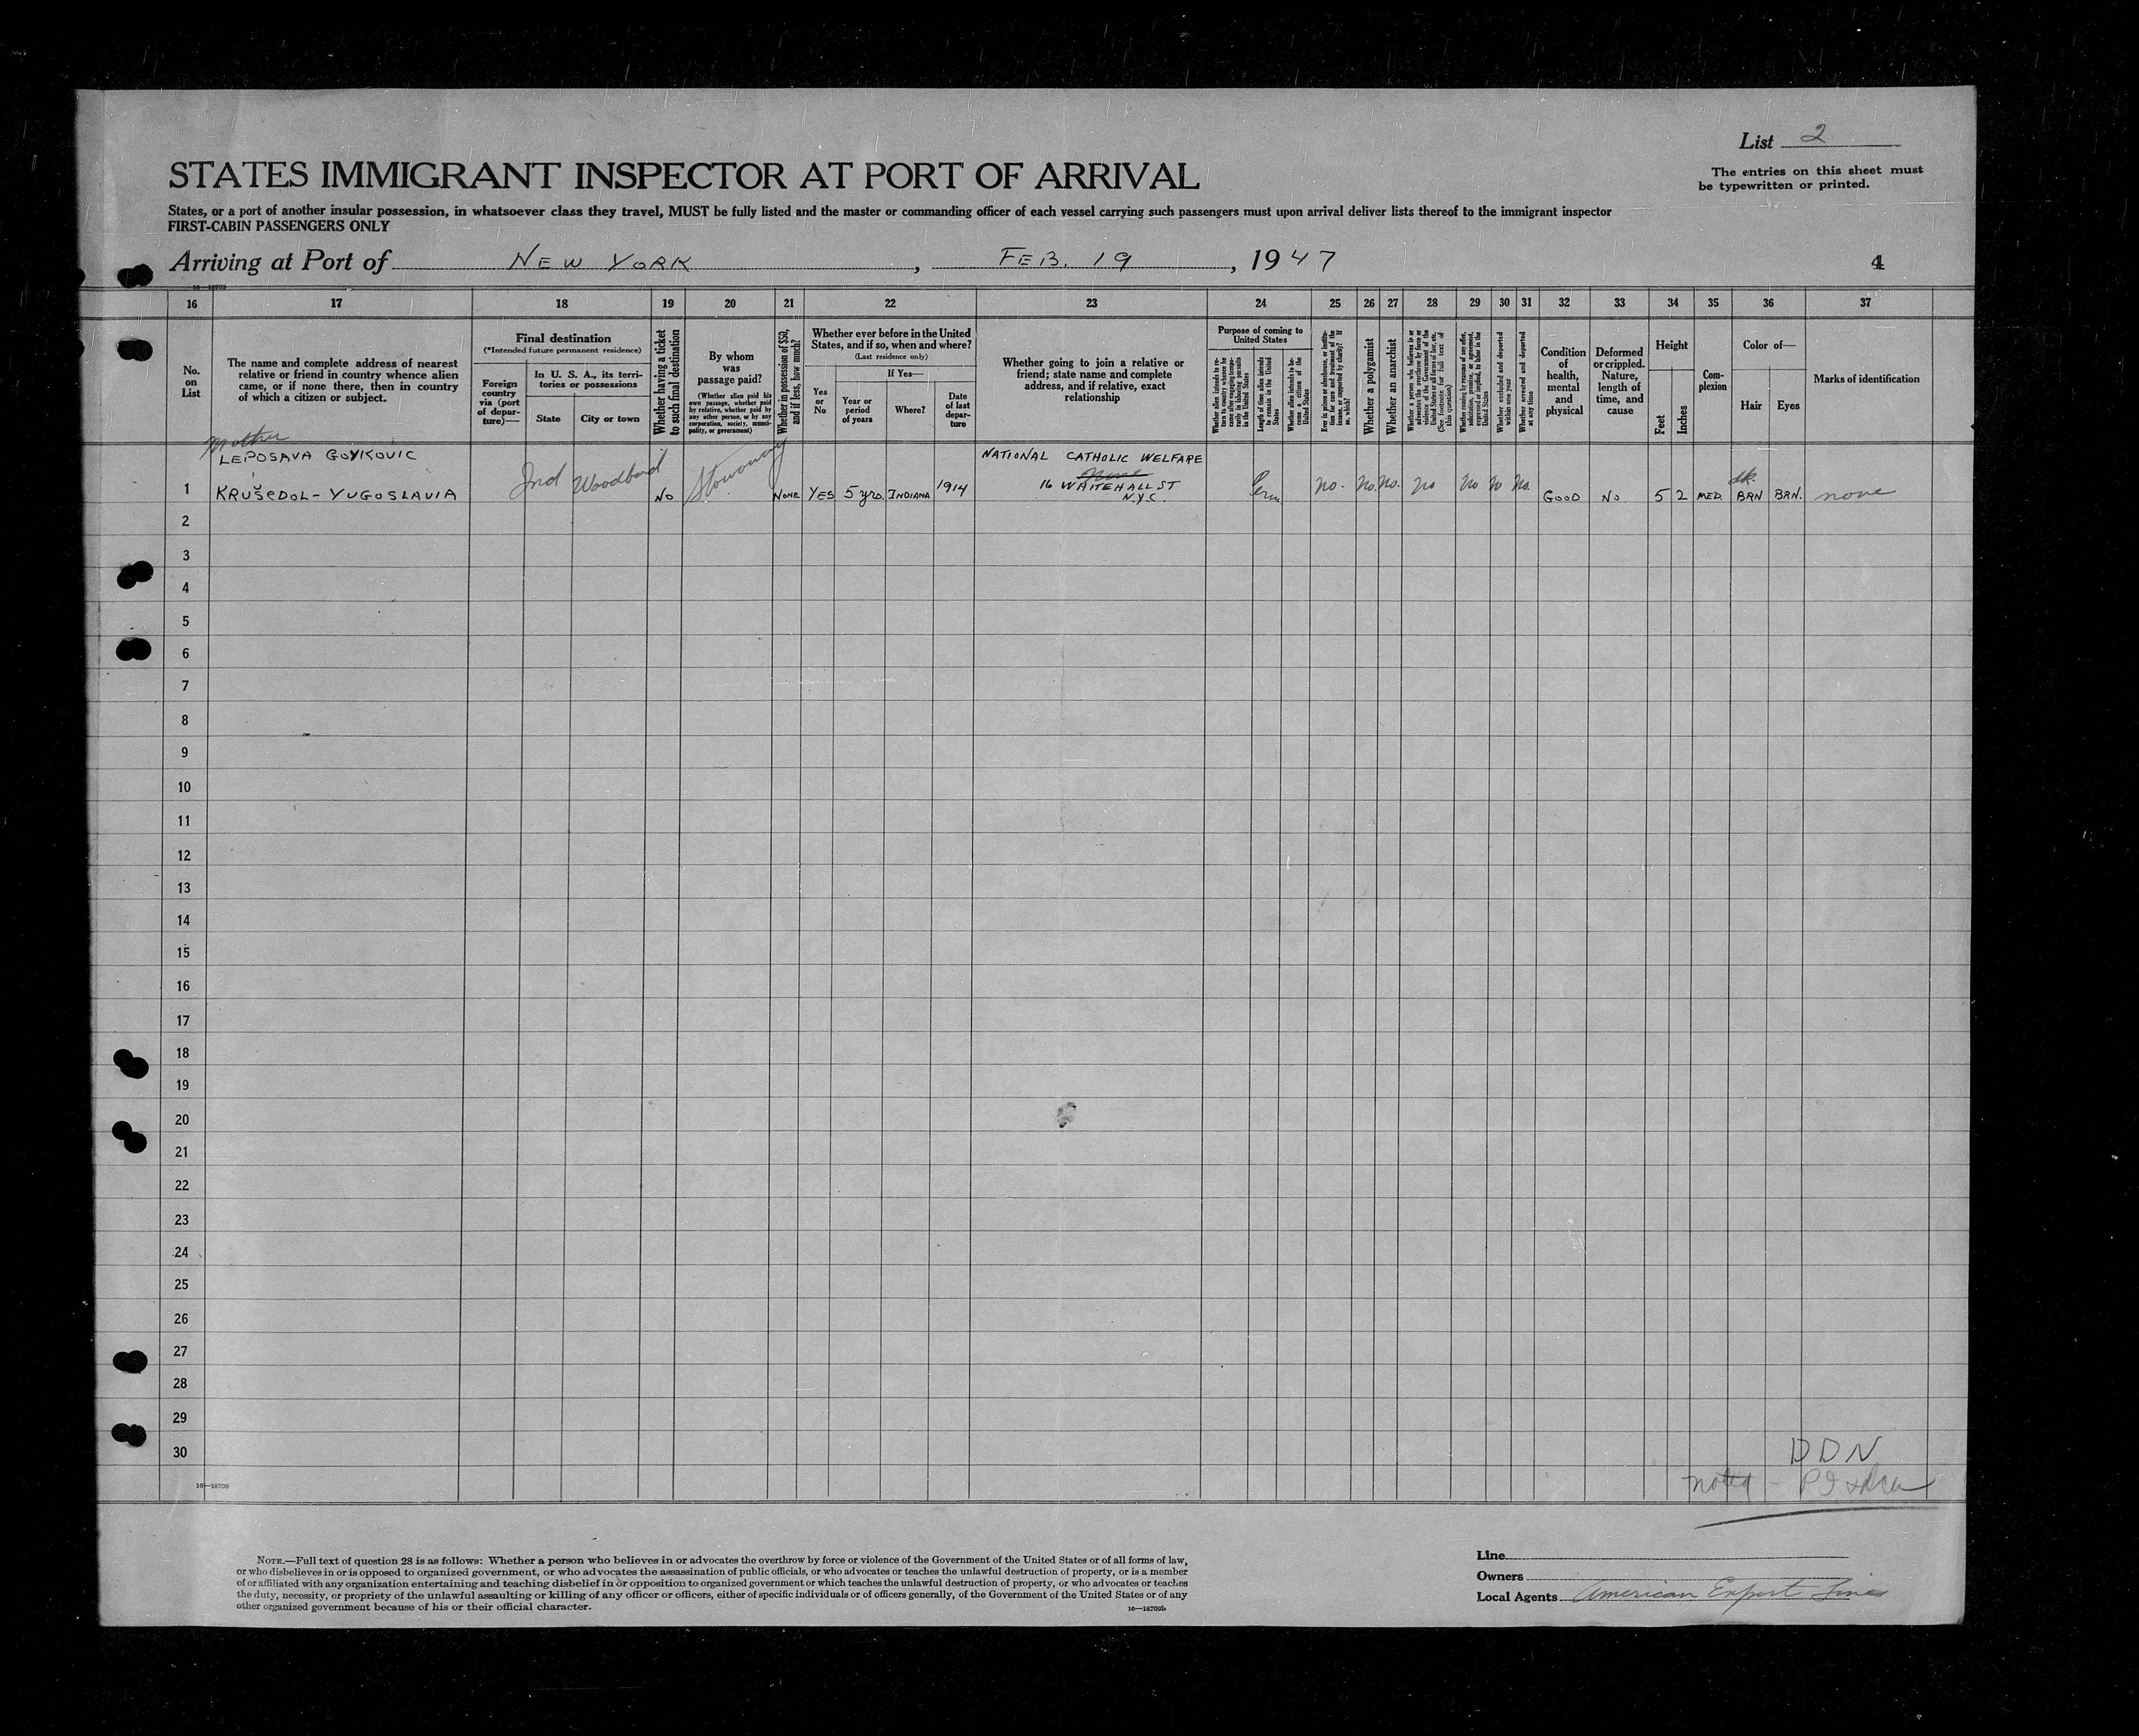 List 2
The entries on this sheet must
be typewritten or printed.
STATES IMMIGRANT INSPECTOR AT PORT OF ARRIVAL
States, or a port of another insular possession, in whatsoever class they travel, MUST be fully listed and the master or commanding officer of each vessel carrying such passengers must upon arrival deliver lists thereof to the immigrant inspector
FIRST-CABIN PASSENGERS ONLY
Arriving at Port of NEW YORK, FEB. 19, 1947
4
16—18709
16 17 18 19 20 21 22 23 24 25 26 27 28 29 30 31 32 33 34 35 36 37
No.
on
List
The name and complete address of nearest
relative or friend in country whence alien
came, or if none there, then in country
of which a citizen or subject.
Final destination
(*Intended future permanent residence)
Foreign
country
via (port
of depar-
ture)—
In U. S. A., its terri-
tories or possessions
State
City or town
Whether having a ticket
to such final destination
By whom
was
passage paid?
(Whether alien paid his
own passage, whether paid
by relative, whether paid by
any other person, or by any
corporation, society, munici-
pality, or government)
Whether in possession of $50,
and if less, how much?
Whether ever before in the United
States, and if so, when and where?
(Last residence only)
Yes
or
No
If Yes—
Year or
period
of years
Where?
Date
of last
depar-
ture
Whether going to join a relative or
friend; state name and complete
address, and if relative, exact
relationship
Purpose of coming to
United States
Length of time alien intends
to remain in the United
States
Whether alien intends to be-
come a citizen of the
United States
Whether a polygamist
Whether an anarchist
Whether excluded and deported
within one year
Whether arrested and deported
at any time
Condition
of
health,
mental
and
physical
Deformed
or crippled.
Nature,
length of
time, and
cause
Height
Feet
Inches
Com-
plexion
Color of—
Hair
Eyes
Marks of identification
Mother
LEPOSAVA GOYKOVIC
NATIONAL CATHOLIC WELFARE
1 KRUŠEDOL-YUGOSLAVIA Ind No Stowaway NONE YES 5 yrs. INDIANA 1914 16 WHITEHALL ST Perm. no. no. no. no no no no. GOOD NO 5 2 MED. dk. BRN BRN. none
N.Y.C.
2
3
4
5
6
7
8
9
10
11
12
13
14
15
16
17
18
19
20
21
22
23
24
25
26
27
28
29
30
DDN
noted
16—18709
NOTE.—Full text of question 28 is as follows: Whether a person who believes in or advocates the overthrow by force or violence of the Government of the United States or of all forms of law,
or who disbelieves in or is opposed to organized government, or who advocates the assassination of public officials, or who advocates or teaches the unlawful destruction of property, or is a member
of or affiliated with any organization entertaining and teaching disbelief in or opposition to organized government or which teaches the unlawful destruction of property, or who advocates or teaches
the duty, necessity, or propriety of the unlawful assaulting or killing of any officer or officers, either of specific individuals or of officers generally, of the Government of the United States or of any
other organized government because of his or their official character.
16—18709b
Line
Owners
Local Agents American Export Lines